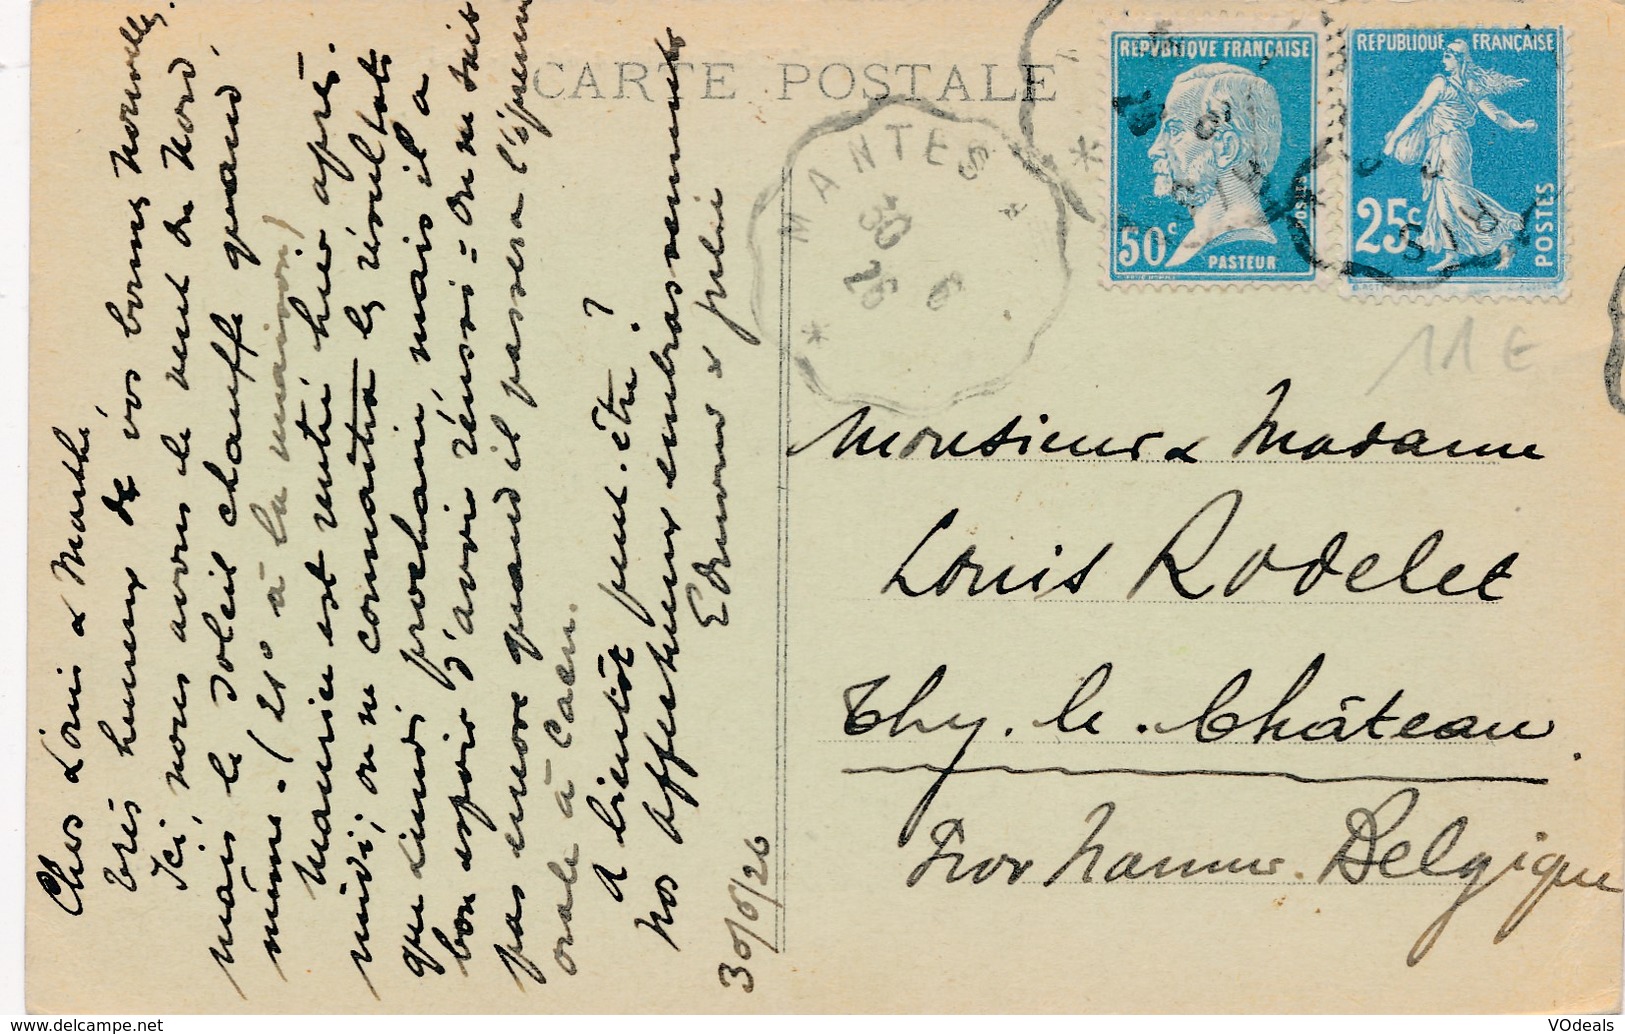 CARTE POSTALE
REPVBLIQVE FRANÇAISE
50c
POSTES
PASTEUR
REPUBLIQUE FRANÇAISE
25c
POSTES
MANTES
30
6
26
PARIS
11 €
Chers Louis & Marthe,
très heureux de vos bonnes nouvelles.
Ici, nous avons le vent du Nord,
mais le soleil chauffe quand
même. (21° à la maison)
Maurice est rentré hier après-
midi; on ne connaîtra les résultats
que lundi prochain, mais il a
bon espoir d'avoir réussi = on ne sait
pas encore quand il passera l'épreuve
orale à Caen.
A bientôt peut-être ?
Nos affectueux embrassements
Edmond & Julie
30/6/26
Monsieur & Madame
Louis Rodelet
Thy. le. Château.
Prov Namur. Belgique
www.delcampe.net
VOdeals